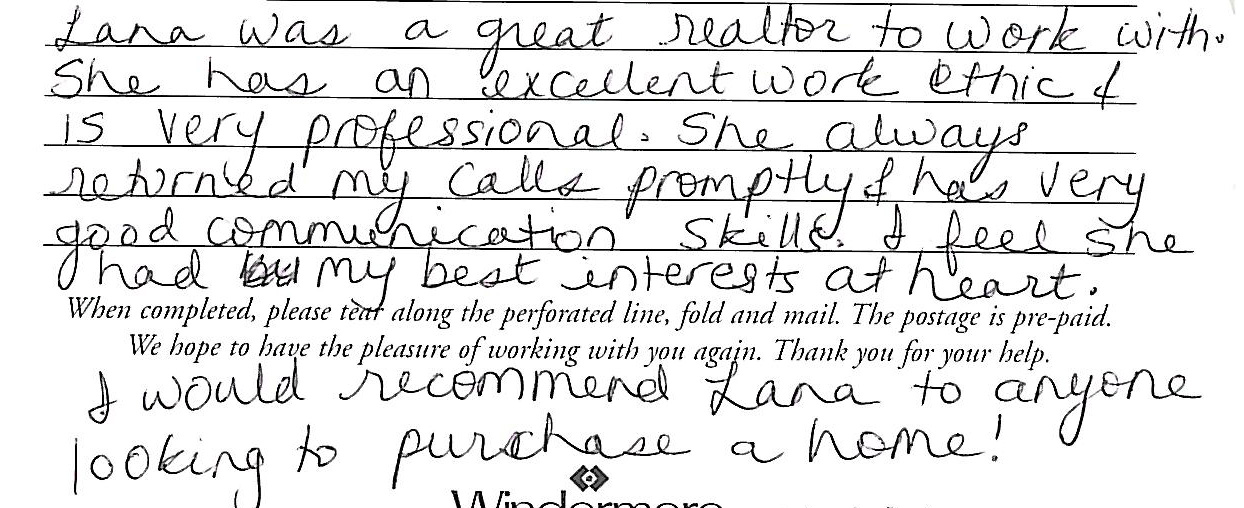 Lana was a great realtor to work with.
She has an excellent work ethic &
is very professional. She always
returned my calls promptly & has very
good communication skills. I feel she
had my best interests at heart.
When completed, please tear along the perforated line, fold and mail. The postage is pre-paid.
We hope to have the pleasure of working with you again. Thank you for your help.
I would recommend Lana to anyone
looking to purchase a home!
Windermere